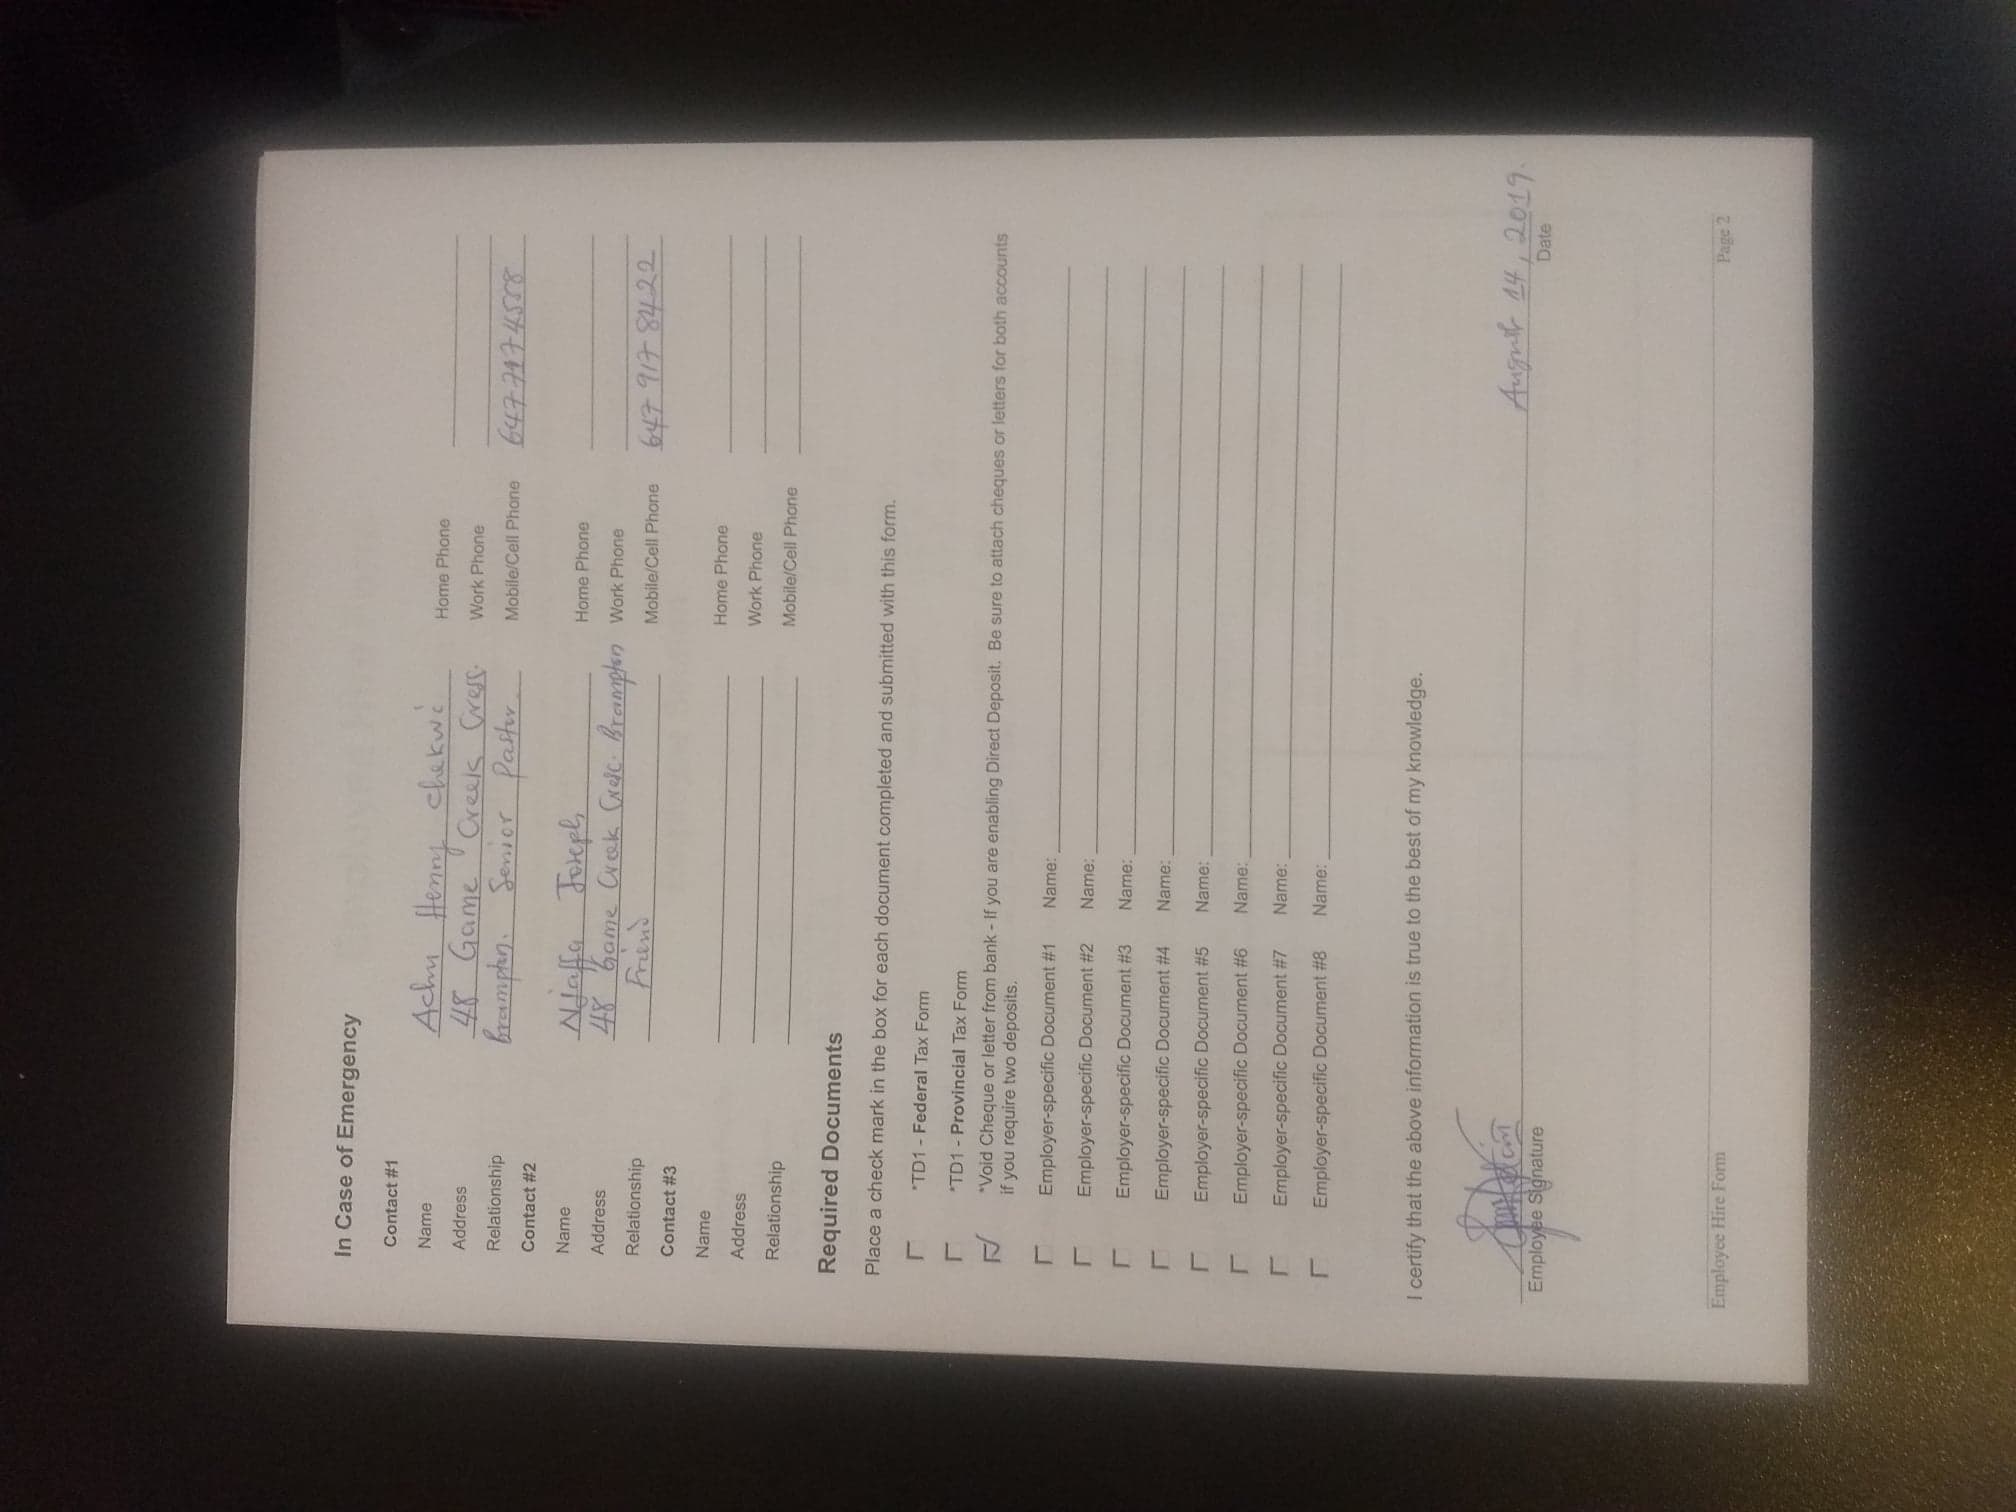 In Case of Emergency
Contact #1
Name Achu Henry Chekwi Home Phone
Address 48 Game Creek Cress. Work Phone
Relationship Brampton. Senior Pastor Mobile/Cell Phone 647 717 4558
Contact #2
Name Njaffa Joseph Home Phone
Address 48 Game Creek Cresc. Brampton Work Phone
Relationship Friend Mobile/Cell Phone 647 917 8422
Contact #3
Name Home Phone
Address Work Phone
Relationship Mobile/Cell Phone
Required Documents
Place a check mark in the box for each document completed and submitted with this form.
*TD1 - Federal Tax Form
*TD1 - Provincial Tax Form
*Void Cheque or letter from bank - If you are enabling Direct Deposit. Be sure to attach cheques or letters for both accounts
if you require two deposits.
Employer-specific Document #1 Name:
Employer-specific Document #2 Name:
Employer-specific Document #3 Name:
Employer-specific Document #4 Name:
Employer-specific Document #5 Name:
Employer-specific Document #6 Name:
Employer-specific Document #7 Name:
Employer-specific Document #8 Name:
I certify that the above information is true to the best of my knowledge.
August 14, 2019.
Employee Signature Date
Employee Hire Form Page 2